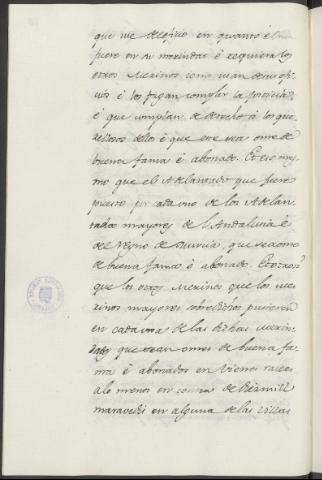 que use del oficio en quanto el
fuere en su merindat é requiera los
otros Merinos como usan de su ofi
cio é los fagan complir la justicia
é que complan de derecho á los que
rellosos dellos é que ese sea ome de
buena fama é abonado. Et eso mis
mo que el Adelantado que fuere
puesto por cada uno de los Adelan
tados mayores de l'Andalusia é
del Regno de Murcia, que sea ome
de buena fama é abonado. Et otrosi
que los otros Merinos que los me
rinos mayores sobredichos pusieren
en cada una de las dichas Merin
dades que sean omes de buena fa
ma é abonados en bienes raices
a lo menos en contia de diez mill
maravedis en alguna de las villas